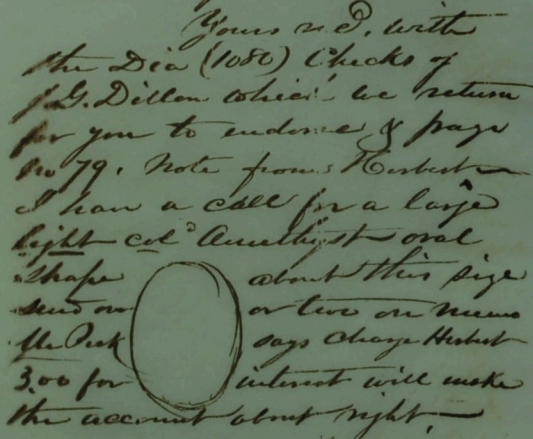 Yours rec'd, with
the Dia (1080) Checks of
J. G. Dillon which we return
for you to endorse & page
No 79. Note from Herbert
I have a call for a large
light col'd Amethyst oval
shape about this size
send one or two on memo
Mr Peck says charge Herbert
3.00 for interest will make
the account about right.